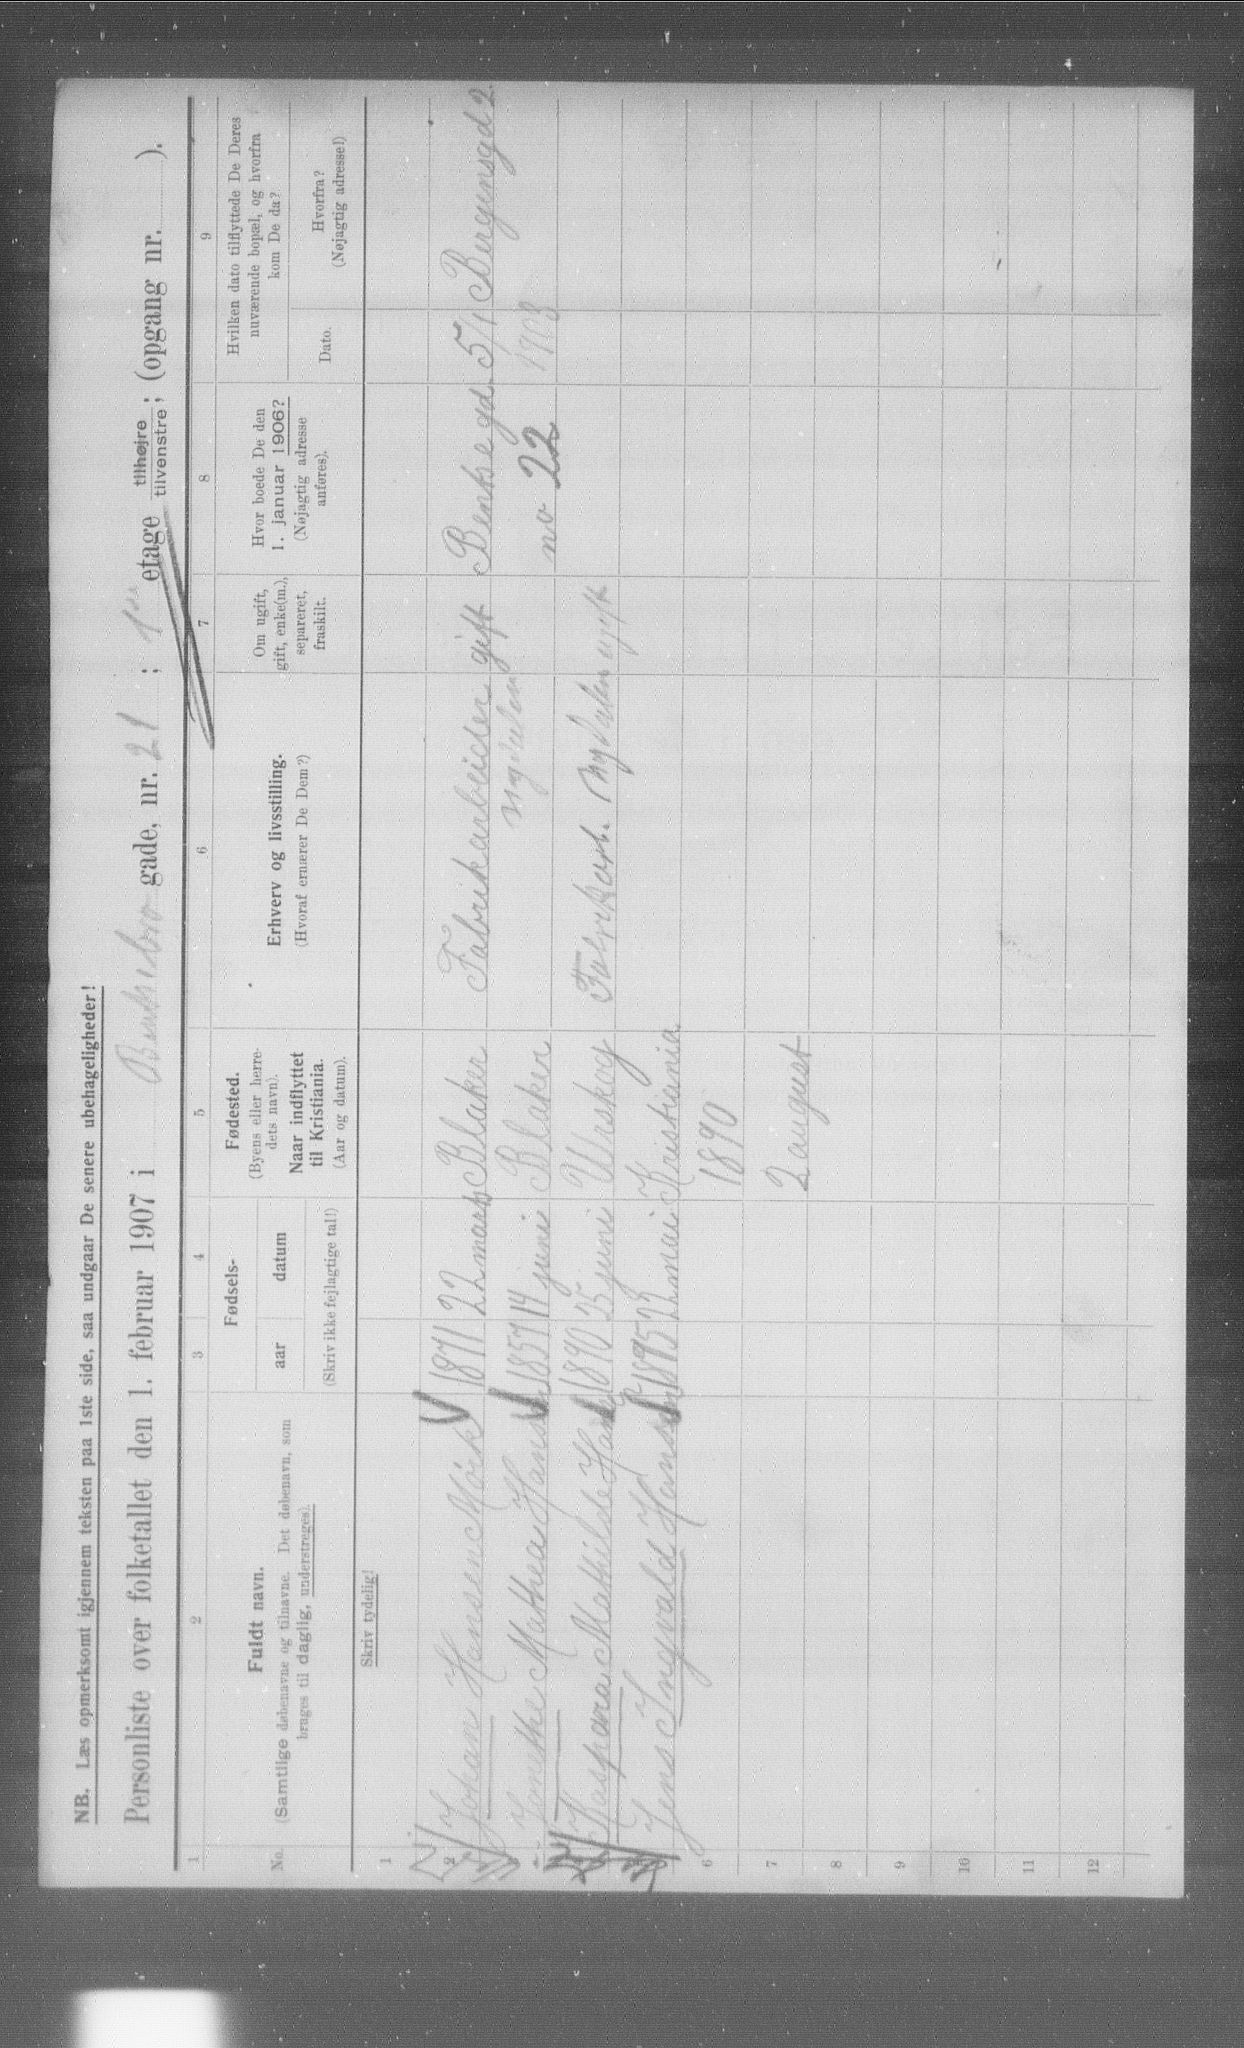 NB. Læs opmerksomt igjennem teksten paa 1ste side, saa undgaar De senere ubehageligheder!
Personliste over folketallet den 1. februar 1907 i gade, nr. 21 ; 1ste etage tilhøjre tilvenstre; (opgang nr. ).
1 2 3 4 5 6 7 8 9
No.
Fuldt navn.
(Samtlige døbenavne og tilnavne. Det døbenavn, som
bruges til daglig, understreges).
Fødsels-
aar datum
(Skriv ikke fejlagtige tal!)
Fødested.
(Byens eller herre-
dets navn).
Naar indflyttet
til Kristiania.
(Aar og datum).
Erhverv og livsstilling.
(Hvoraf ernærer De Dem?)
Om ugift,
gift, enke(m.),
separeret,
fraskilt.
Hvor boede De den
1. januar 1906?
(Nøjagtig adresse
anføres).
Hvilken dato tilflyttede De Deres
nuværende bopæl, og hvorfra
kom De da?
Dato.
Hvorfra?
(Nøjagtig adresse!)
Skriv tydelig!
1
2 Johan Hansen Mørk 1871 22 marts Blaker Fabrikarbeider gift Bentsegd 5/1 Bergensgd 2
Mathea Hansen 1857 14 juni Blaker Nydalen no 22 1903
Kaspara Mathilde Hansen 1890 25 juni Urskog Fabrikarb. Nydalen ugift
Jens Ingvald Hansen 1895 22 mai Kristiania
6 1890
7 2 august
8
9
10
11
12